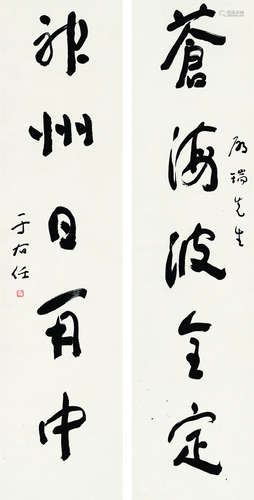 蒼海波全定
瑞先生
神州日再中
于右任